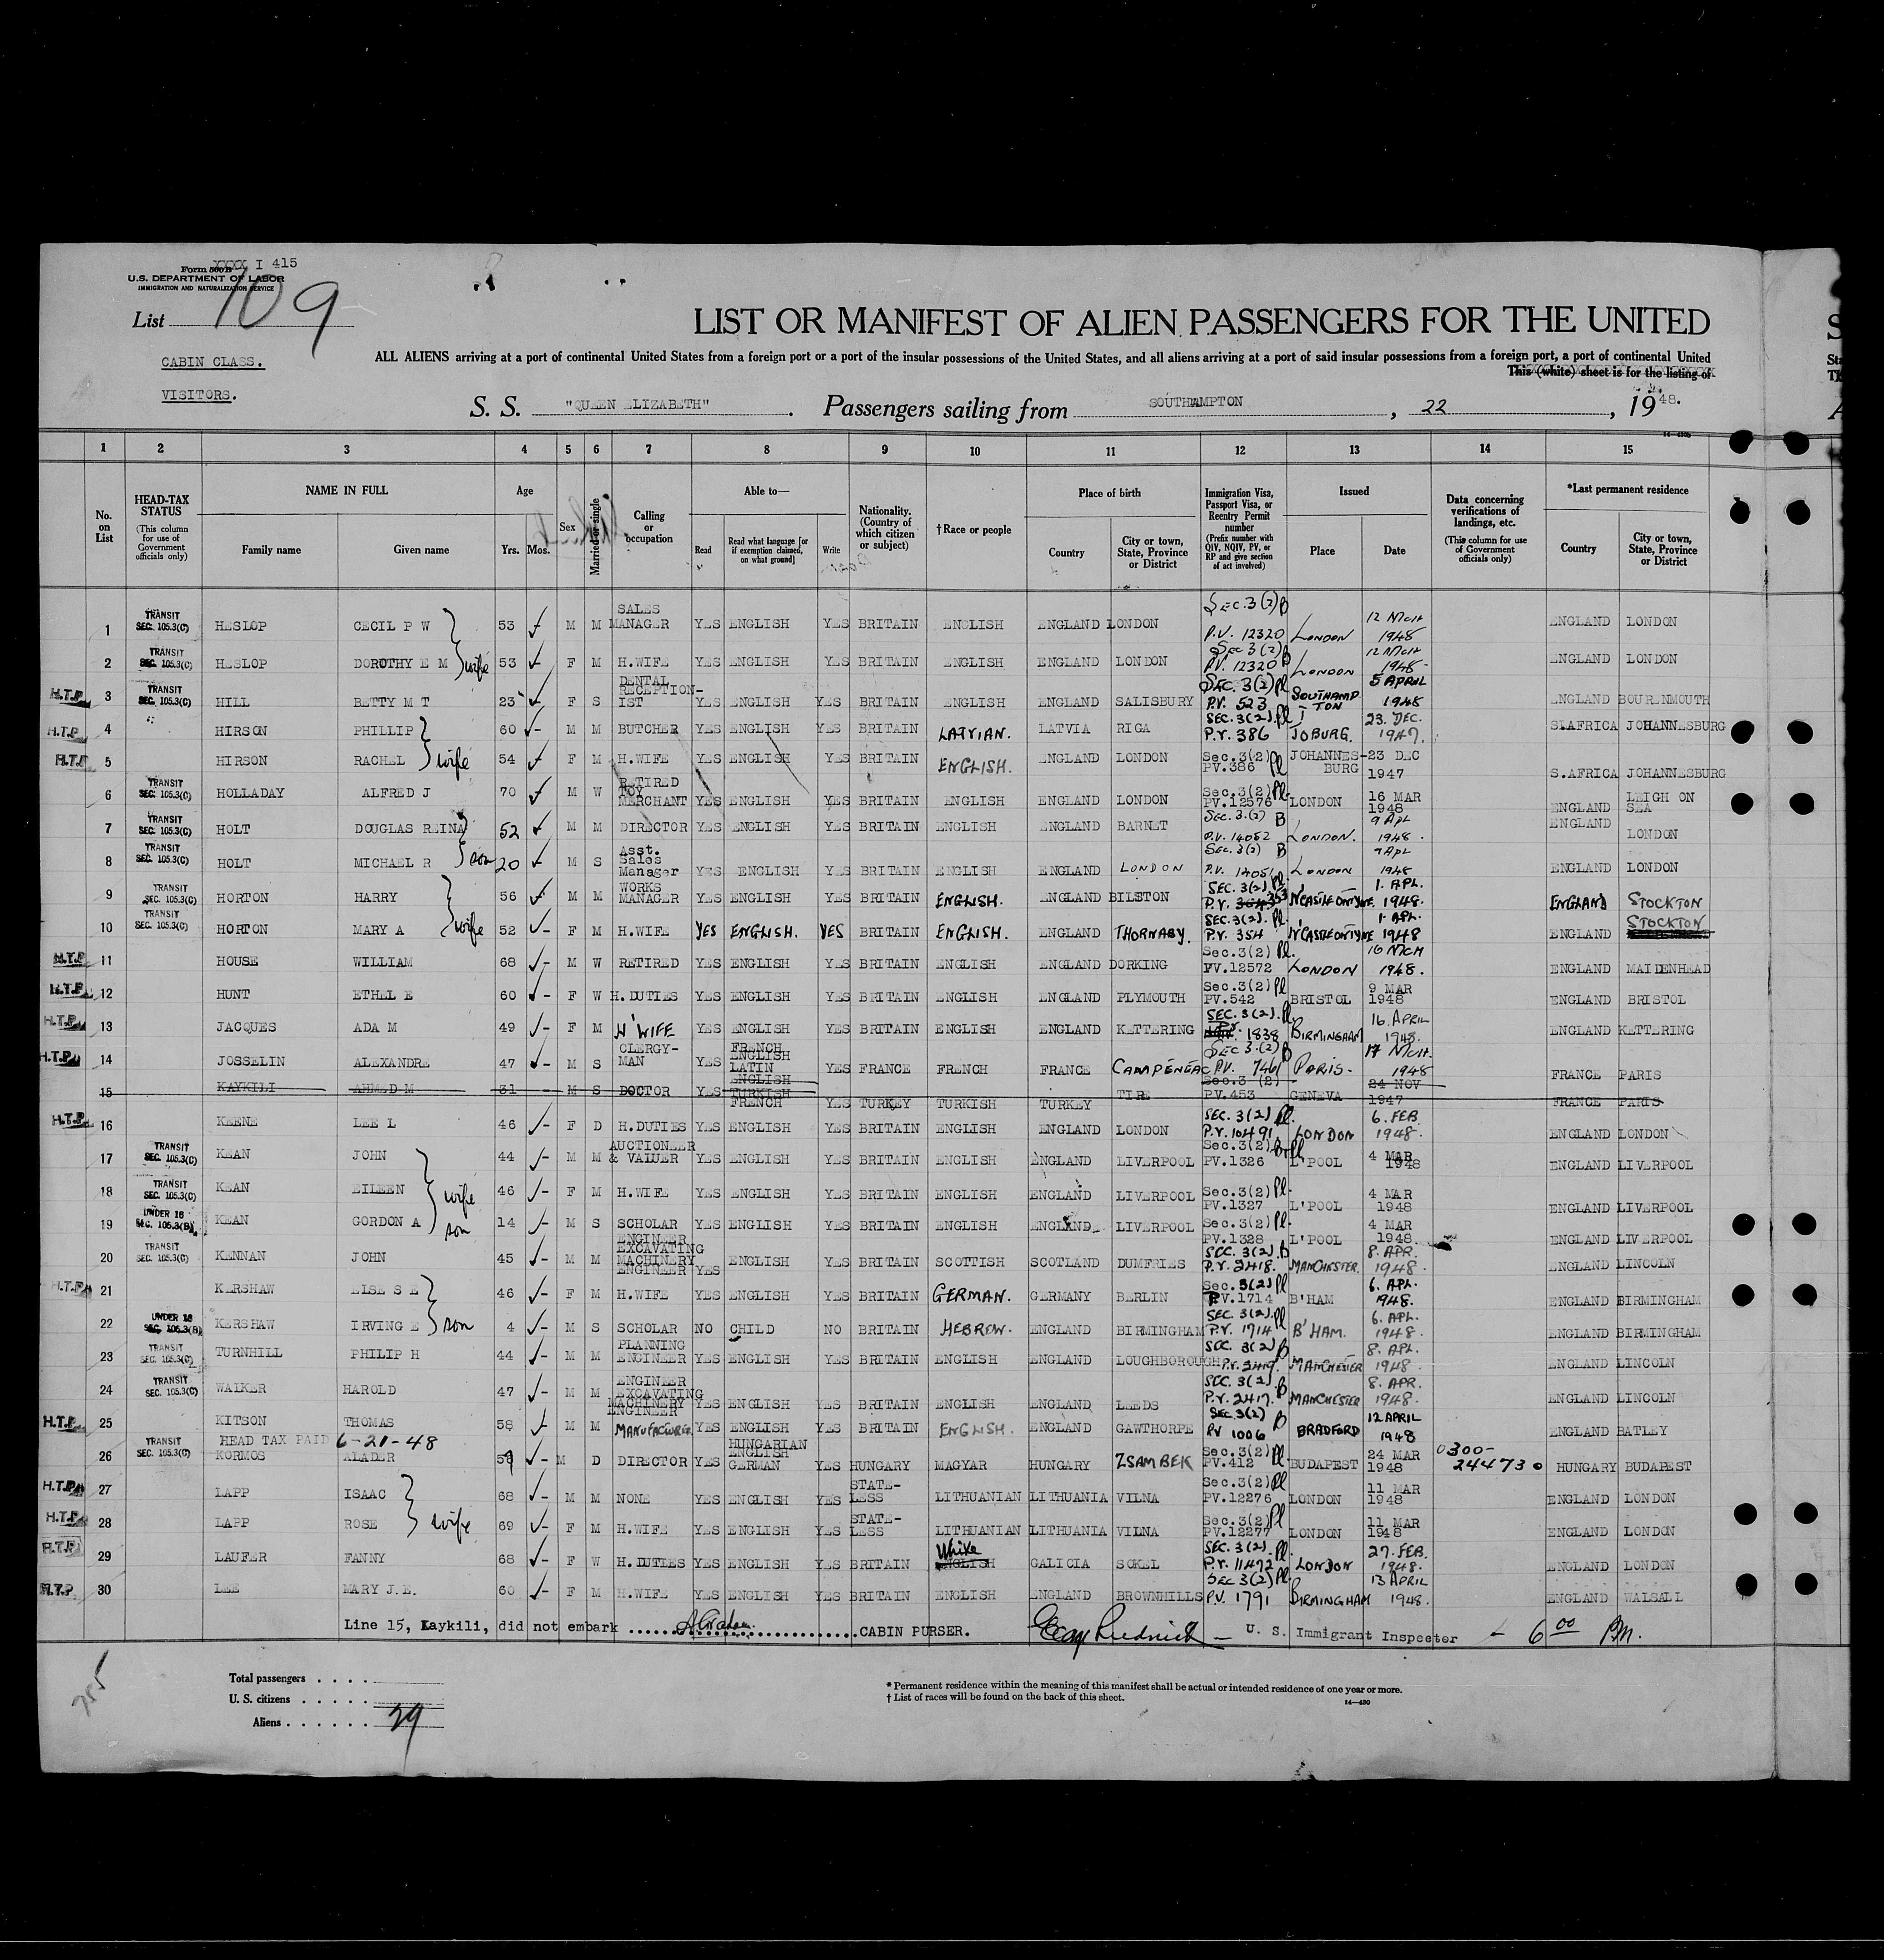 Form 500 B XXXX I 415
U.S. DEPARTMENT OF LABOR
IMMIGRATION AND NATURALIZATION SERVICE
List 109
CABIN CLASS.
VISITORS.
LIST OR MANIFEST OF ALIEN PASSENGERS FOR THE UNITED
ALL ALIENS arriving at a port of continental United States from a foreign port or a port of the insular possessions of the United States, and all aliens arriving at a port of said insular possessions from a foreign port, a port of continental United
This (white) sheet is for the listing of
S. S. "QUEEN ELIZABETH". Passengers sailing from SOUTHAMPTON, 22, 1948.
1 2 3 4 5 6 7 8 9 10 11 12 13 14 15
No. on List
HEAD-TAX STATUS (This column for use of Government officials only)
NAME IN FULL Family name Given name
Age Yrs. Mos.
Sex
Married or single
Calling or occupation
Able to— Read Read what language [or if exemption claimed, on what ground] Write
Nationality. (Country of which citizen or subject)
†Race or people
Place of birth Country City or town, State, Province or District
Immigration Visa, Passport Visa, or Reentry Permit number (Prefix number with QIV, NQIV, PV, or RP and give section of act involved)
Issued Place Date
Data concerning verifications of landings, etc. (This column for use of Government officials only)
*Last permanent residence Country City or town, State, Province or District
1 TRANSIT SEC. 105.3(C) HESLOP CECIL P W 53 M M SALES MANAGER YES ENGLISH YES BRITAIN ENGLISH ENGLAND LONDON SEC.3(2)B P.V. 12320 LONDON 12 MCH 1948 ENGLAND LONDON
2 TRANSIT SEC. 105.3(C) HESLOP DOROTHY E M wife 53 F M H.WIFE YES ENGLISH YES BRITAIN ENGLISH ENGLAND LONDON Sec 3(2)B P.V. 12320 LONDON 12 MCH 1948 ENGLAND LONDON
H.T.P. 3 TRANSIT SEC. 105.3(C) HILL BETTY M T 23 F S DENTAL RECEPTION-IST YES ENGLISH YES BRITAIN ENGLISH ENGLAND SALISBURY SEC. 3(2) Pl P.V. 523 SOUTHAMP-TON 5 APRIL 1948 ENGLAND BOURNEMOUTH
H.T.P. 4 HIRSON PHILLIP 60 M M BUTCHER YES ENGLISH YES BRITAIN LATVIAN. LATVIA RIGA SEC.3(2). Pl P.V. 386 JOBURG. 23. DEC. 1947. S.AFRICA JOHANNESBURG
H.T.P. 5 HIRSON RACHEL wife 54 F M H.WIFE YES ENGLISH YES BRITAIN ENGLISH. ENGLAND LONDON Sec.3(2) Pl PV.386 JOHANNES-BURG 23 DEC 1947 S.AFRICA JOHANNESBURG
6 TRANSIT SEC. 105.3(C) HOLLADAY ALFRED J 70 M W RETIRED TOY MERCHANT YES ENGLISH YES BRITAIN ENGLISH ENGLAND LONDON Sec.3(2) Pl. PV.12576 LONDON 16 MAR 1948 ENGLAND LEIGH ON SEA
7 TRANSIT SEC. 105.3(C) HOLT DOUGLAS REINA 52 M M DIRECTOR YES ENGLISH YES BRITAIN ENGLISH ENGLAND BARNET SEC.3.(2) B P.V. 14052 LONDON. 9 APL 1948. ENGLAND LONDON
8 TRANSIT SEC. 105.3(C) HOLT MICHAEL R son 20 M S Asst. Sales Manager YES ENGLISH YES BRITAIN ENGLISH ENGLAND LONDON SEC.3(2) B P.V. 14051 LONDON 9 APL 1948 ENGLAND LONDON
9 TRANSIT SEC. 105.3(C) HORTON HARRY 56 M M WORKS MANAGER YES ENGLISH YES BRITAIN ENGLISH. ENGLAND BILSTON SEC. 3(2) Pl. P.V. 353 N'CASTLE ON TYNE 1. APL. 1948. ENGLAND STOCKTON
10 TRANSIT SEC. 105.3(C) HORTON MARY A wife 52 F M H.WIFE YES ENGLISH. YES BRITAIN ENGLISH. ENGLAND THORNABY. SEC.3(2). Pl. P.V. 354 N'CASTLE ON TYNE 1. APL. 1948 ENGLAND STOCKTON
H.T.P. 11 HOUSE WILLIAM 68 M W RETIRED YES ENGLISH YES BRITAIN ENGLISH ENGLAND DORKING Sec.3(2) Pl. PV.12572 LONDON 16 MCH 1948. ENGLAND MAIDENHEAD
H.T.P. 12 HUNT ETHEL E 60 F W H.DUTIES YES ENGLISH YES BRITAIN ENGLISH ENGLAND PLYMOUTH Sec.3(2) Pl PV.542 BRISTOL 9 MAR 1948 ENGLAND BRISTOL
H.T.P. 13 JACQUES ADA M 49 F M H'WIFE YES ENGLISH YES BRITAIN ENGLISH ENGLAND KETTERING SEC.3(2). Pl. P.V. 1838 BIRMINGHAM 16 APRIL 1948. ENGLAND KETTERING
H.T.P. 14 JOSSELIN ALEXANDRE 47 M S CLERGY-MAN YES FRENCH ENGLISH LATIN YES FRANCE FRENCH FRANCE CAMPÉNÉAC SEC 3.(2) B P.V. 7461 PARIS. 17 MCH. 1948 FRANCE PARIS
15 KAYKILI AHMED M 31 M S DOCTOR YES ENGLISH TURKISH FRENCH YES TURKEY TURKISH TURKEY TIRE Sec.3 (2) PV.453 GENEVA 24 NOV 1947 FRANCE PARIS
H.T.P. 16 KEENE LEE L 46 F D H.DUTIES YES ENGLISH YES BRITAIN ENGLISH ENGLAND LONDON SEC. 3(2) Pl. P.V. 10491 LONDON 6. FEB. 1948. ENGLAND LONDON
17 TRANSIT SEC. 105.3(C) KEAN JOHN 44 M M AUCTIONEER & VALUER YES ENGLISH YES BRITAIN ENGLISH ENGLAND LIVERPOOL Sec.3(2) PV.1326 L'POOL 4 MAR 1948 ENGLAND LIVERPOOL
18 TRANSIT SEC. 105.3(C) KEAN EILEEN wife 46 F M H.WIFE YES ENGLISH YES BRITAIN ENGLISH ENGLAND LIVERPOOL Sec.3(2) Pl. PV.1327 L'POOL 4 MAR 1948 ENGLAND LIVERPOOL
19 UNDER 16 SEC. 105.3(B) KEAN GORDON A son 14 M S SCHOLAR YES ENGLISH YES BRITAIN ENGLISH ENGLAND LIVERPOOL Sec.3(2) Pl. PV.1328 L'POOL 4 MAR 1948. ENGLAND LIVERPOOL
20 TRANSIT SEC. 105.3(C) KENNAN JOHN 45 M M ENGINEER EXCAVATING MACHINERY ENGINEER YES ENGLISH YES BRITAIN SCOTTISH SCOTLAND DUMFRIES SEC. 3(2). B P.V. 2418. MANCHESTER. 8. APR. 1948. ENGLAND LINCOLN
H.T.P. 21 KERSHAW ELSE S E 46 F M H.WIFE YES ENGLISH YES BRITAIN GERMAN. GERMANY BERLIN Sec. 3(2) Pl PV.1714 B'HAM 6. APL. 1948. ENGLAND BIRMINGHAM
22 UNDER 16 SEC. 105.3(B) KERSHAW IRVING E son 4 M S SCHOLAR NO CHILD NO BRITAIN HEBREW. ENGLAND BIRMINGHAM SEC. 3(2). Pl P.V. 1714 B'HAM. 6. APL. 1948. ENGLAND BIRMINGHAM
23 TRANSIT SEC. 105.3(C) TURNHILL PHILIP H 44 M M PLANNING ENGINEER YES ENGLISH YES BRITAIN ENGLISH ENGLAND LOUGHBOROUGH SEC. 3(2) B P.V. 2419. MANCHESTER 8. APL. 1948. ENGLAND LINCOLN
24 TRANSIT SEC. 105.3(C) WALKER HAROLD 47 M M ENGINEER EXCAVATING MACHINERY ENGINEER YES ENGLISH YES BRITAIN ENGLISH ENGLAND LEEDS SEC. 3(2). B P.V. 2417. MANCHESTER 8. APR. 1948. ENGLAND LINCOLN
H.T.P. 25 KITSON THOMAS 58 M M MANUFACTURER YES ENGLISH YES BRITAIN ENGLISH. ENGLAND GAWTHORPE SEC 3(2) B PV 1006 BRADFORD 12 APRIL 1948 ENGLAND BATLEY
HEAD TAX PAID 6-21-48
26 TRANSIT SEC. 105.3(C) KORMOS ALADER 59 M D DIRECTOR YES HUNGARIAN ENGLISH GERMAN YES HUNGARY MAGYAR HUNGARY ZSAMBEK Sec.3(2) Pl PV.412 BUDAPEST 24 MAR 1948 0300-244730 HUNGARY BUDAPEST
H.T.P. 27 LAPP ISAAC 68 M M NONE YES ENGLISH YES STATE-LESS LITHUANIAN LITHUANIA VILNA Sec.3(2) Pl PV.12276 LONDON 11 MAR 1948 ENGLAND LONDON
H.T.P. 28 LAPP ROSE wife 69 F M H.WIFE YES ENGLISH YES STATE-LESS LITHUANIAN LITHUANIA VILNA Sec.3(2) Pl PV.12277 LONDON 11 MAR 1948 ENGLAND LONDON
H.T.P. 29 LAUFER FANNY 68 F W H.DUTIES YES ENGLISH YES BRITAIN White ENGLISH GALICIA SOKEL SEC. 3(2). Pl. P.V. 11472 LONDON 27. FEB. 1948. ENGLAND LONDON
H.T.P. 30 LEE MARY J.E. 60 F M H.WIFE YES ENGLISH YES BRITAIN ENGLISH ENGLAND BROWNHILLS SEC 3(2) Pl. P.V. 1791 BIRMINGHAM 13 APRIL 1948. ENGLAND WALSALL
Line 15, Kaykili, did not embark CABIN PURSER. U. S. Immigrant Inspector - 6 00 PM.
Total passengers
U. S. citizens
Aliens 29
* Permanent residence within the meaning of this manifest shall be actual or intended residence of one year or more.
† List of races will be found on the back of this sheet.
14—430